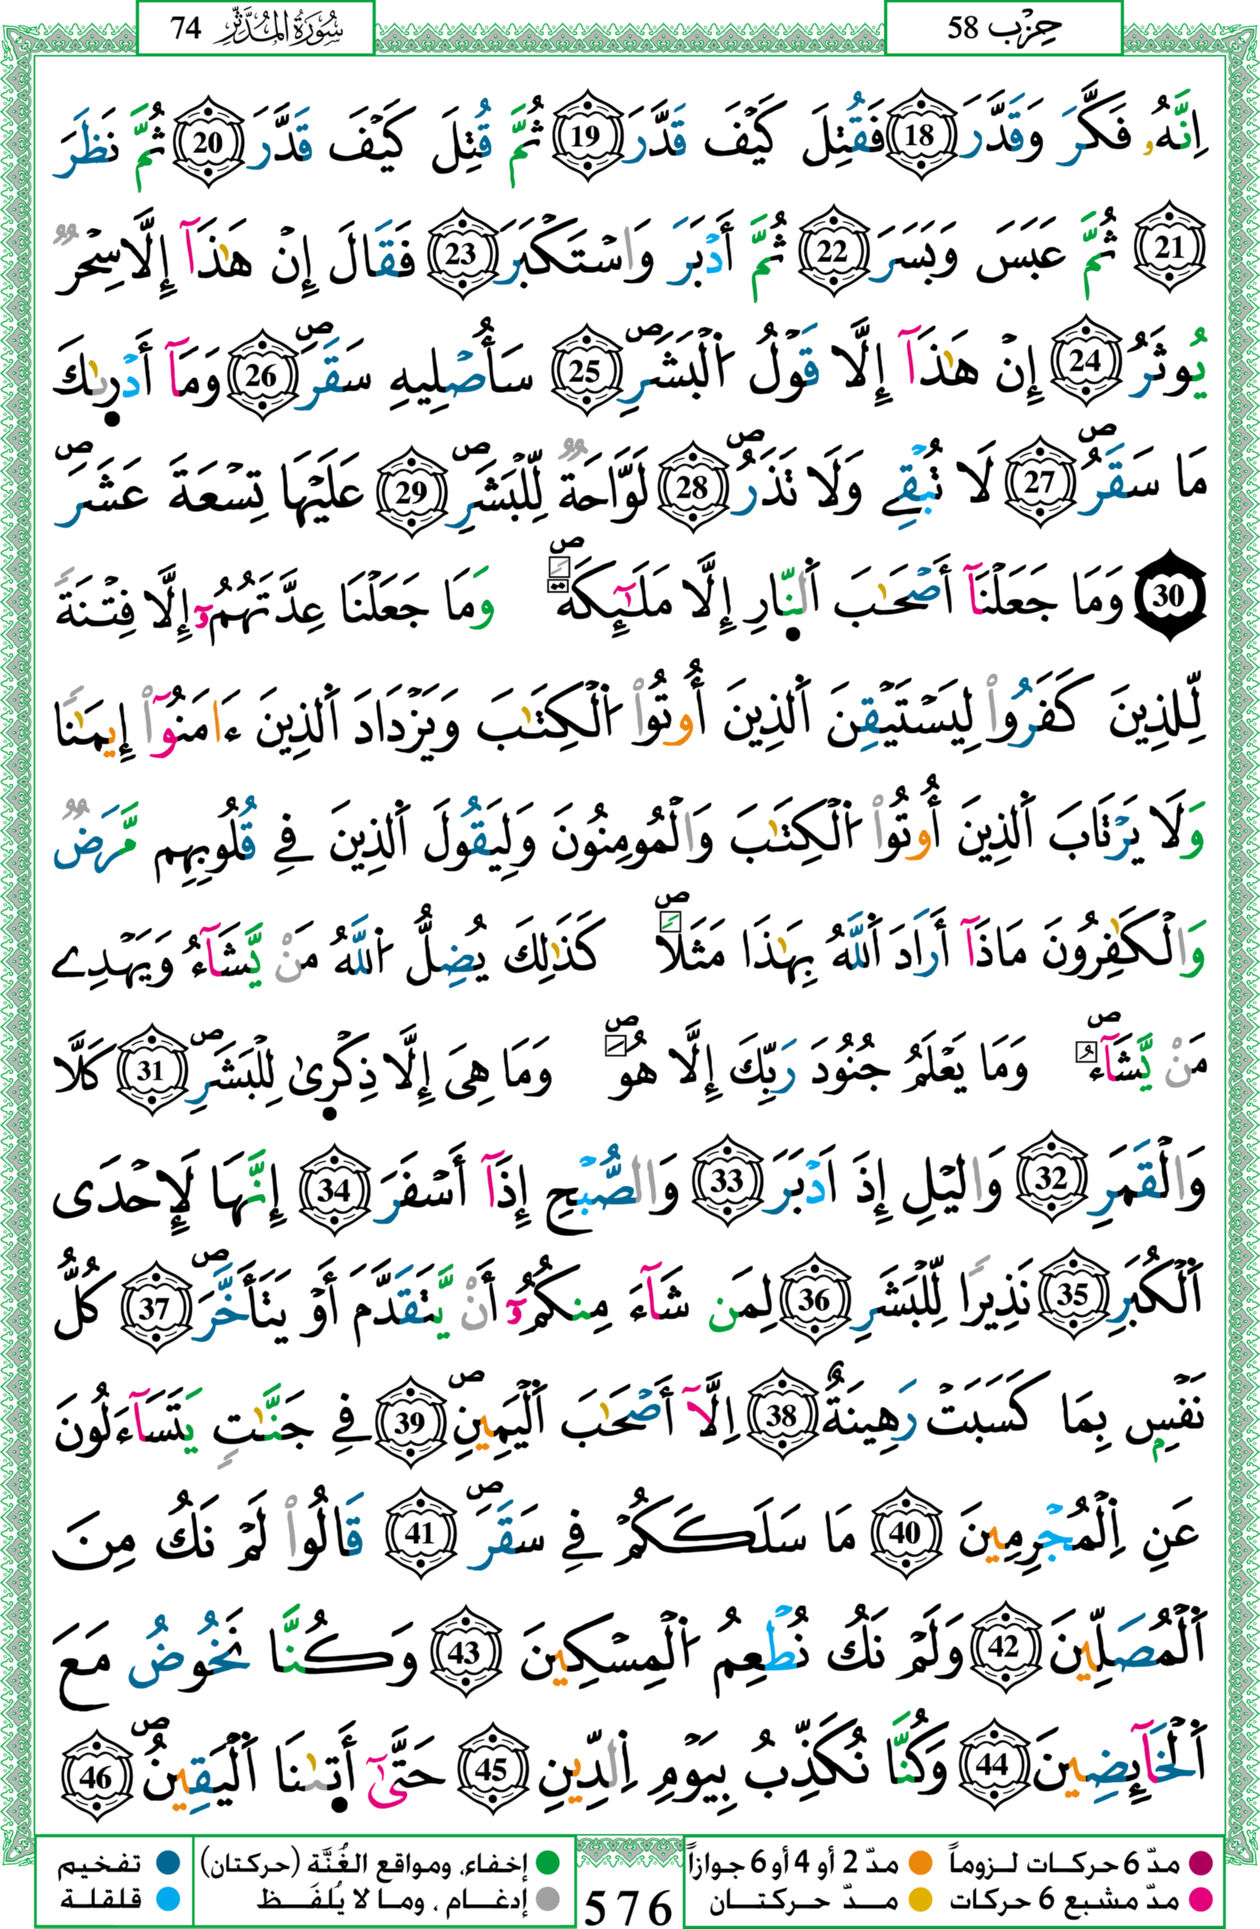 سُورَةُ المُدَّثِّر 74
حِزْب 58
اِنَّهُۥ فَكَّرَ وَقَدَّرَ 18 فَقُتِلَ كَيْفَ قَدَّرَ 19 ثُمَّ قُتِلَ كَيْفَ قَدَّرَ 20 ثُمَّ نَظَرَ
21 ثُمَّ عَبَسَ وَبَسَرَ 22 ثُمَّ أَدْبَرَ وَاسْتَكْبَرَ 23 فَقَالَ إِنْ هَٰذَآ إِلَّا سِحْرٌ
يُوثَرُ 24 إِنْ هَٰذَآ إِلَّا قَوْلُ اُ۬لْبَشَرِۖ 25 سَأُصْلِيهِ سَقَرَۖ 26 وَمَآ أَدْر۪ىٰكَ
مَا سَقَرُۖ 27 لَا تُبْقِے وَلَا تَذَرُۖ 28 لَوَّاحَةٌ لِّلْبَشَرِۖ 29 عَلَيْهَا تِسْعَةَ عَشَرَۖ
30 وَمَا جَعَلْنَآ أَصْحَٰبَ اَ۬لنّ۪ارِ إِلَّا مَلَٰٓئِكَةًۖ وَمَا جَعَلْنَا عِدَّتَهُمُۥٓ إِلَّا فِتْنَةً
لِّلذِينَ كَفَرُواْ لِيَسْتَيْقِنَ اَ۬لذِينَ أُوتُواْ اُ۬لْكِتَٰبَ وَيَزْدَادَ اَ۬لذِينَ ءَامَنُوٓاْ إِيمَٰناً
وَلَا يَرْتَابَ اَ۬لذِينَ أُوتُواْ اُ۬لْكِتَٰبَ وَالْمُومِنُونَ وَلِيَقُولَ اَ۬لذِينَ فِے قُلُوبِهِم مَّرَضٌ
وَالْكَٰفِرُونَ مَاذَآ أَرَادَ اَ۬للَّهُ بِهَٰذَا مَثَلاًۖ كَذَٰلِكَ يُضِلُّ اُ۬للَّهُ مَنْ يَّشَآءُ وَيَهْدِے
مَنْ يَّشَآءُۖ وَمَا يَعْلَمُ جُنُودَ رَبِّكَ إِلَّا هُوَۖ وَمَا هِيَ إِلَّا ذِكْر۪ىٰ لِلْبَشَرِۖ 31 كَلَّا
وَالْقَمَرِ 32 وَاليْلِ إِذَ اَدْبَرَ 33 وَالصُّبْحِ إِذَآ أَسْفَرَ 34 إِنَّهَا لَإِحْدَى
اَ۬لْكُبَرِ 35 نَذِيراً لِّلْبَشَرِ 36 لِمَن شَآءَ مِنكُمُۥٓ أَنْ يَّتَقَدَّمَ أَوْ يَتَأَخَّرَۖ 37 كُلُّ
نَفْسِۢ بِمَا كَسَبَتْ رَهِينَةٌ 38 اِلَّآ أَصْحَٰبَ اَ۬لْيَمِينِۖ 39 فِے جَنَّٰتٍ يَتَسَآءَلُونَ
عَنِ اِ۬لْمُجْرِمِينَ 40 مَا سَلَكَكُمْ فِے سَقَرَۖ 41 قَالُواْ لَمْ نَكُ مِنَ
اَ۬لْمُصَلِّينَ 42 وَلَمْ نَكُ نُطْعِمُ اُ۬لْمِسْكِينَ 43 وَكُنَّا نَخُوضُ مَعَ
اَ۬لْخَآئِضِينَ 44 وَكُنَّا نُكَذِّبُ بِيَوْمِ اِ۬لدِّينِ 45 حَتَّىٰٓ أَت۪ىٰنَا اَ۬لْيَقِينُۖ 46
مدّ 6 حركات لـزوماً مدّ 2 أو 4 أو 6 جوازاً إخفاء، ومواقع الغُنَّة (حركتان) تفخيم
مدّ مشبع 6 حركات مــدّ حركتــان إدغــام ، ومـا لا يُلفَــظ قلقلـة
576